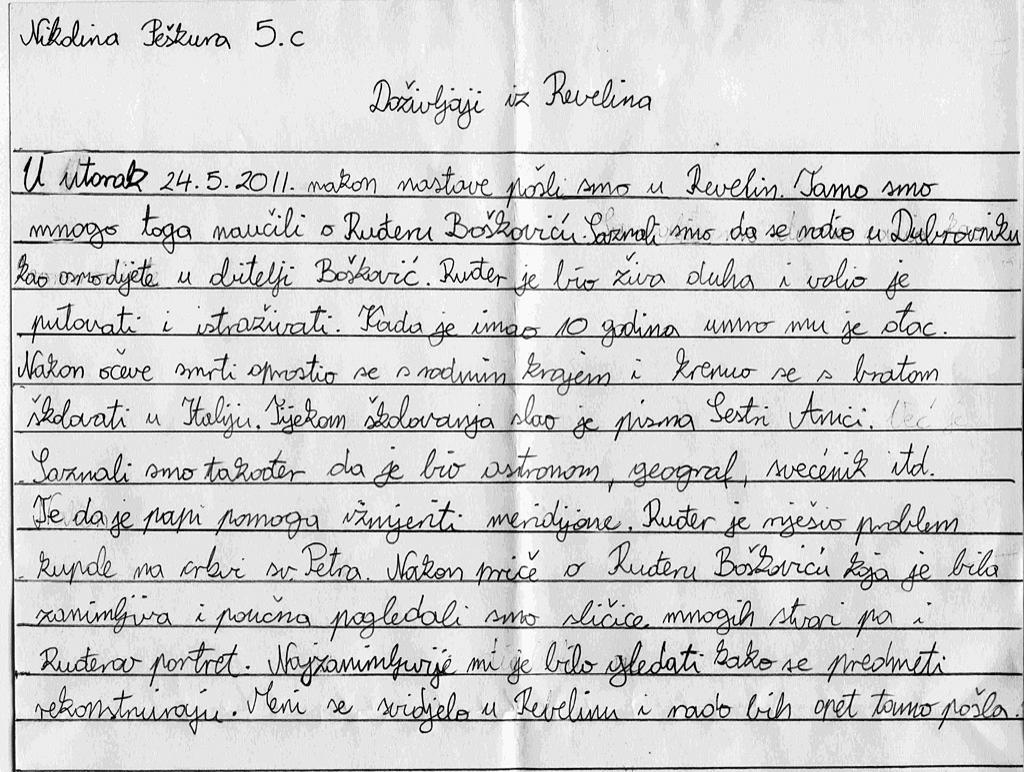 Nikolina Peškura 5.c
Doživljaji iz Revelina
U utorak 24.5.2011. nakon nastave pošli smo u Revelin. Tamo smo
mnogo toga naučili o Ruđeru Boškoviću. Saznali smo da se rodio u Dubrovniku
kao osmo dijete u obitelji Bošković. Ruđer je bio živa duha i volio je
putovati i istraživati. Kada je imao 10 godina umro mu je otac.
Nakon očeve smrti oprostio se s rodnim krajem i krenuo se s bratom
školovati u Italiju. Tijekom školovanja slao je pisma Sestri Anici.
Saznali smo također da je bio astronom, geograf, svećenik itd.
Te da je papi pomoga izmjeriti meridijane. Ruđer je riješio problem
kupole na crkvi sv. Petra. Nakon priče o Ruđeru Boškoviću koja je bila
zanimljiva i poučna pogledali smo sličice mnogih stvari pa i
Ruđerov portret. Najzanimljivije mi je bilo gledati kako se predmeti
rekonstruiraju. Meni se svidjelo u Revelinu i rado bih opet tamo pošla.